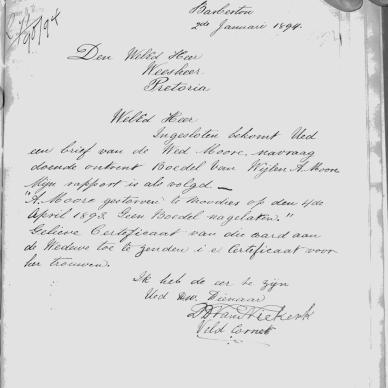 Barberton
2de Januari 1894.
98/94
Den WelEd Heer
Weesheer
Pretoria
WelEd Heer
Ingesloten bekomt Ued
een brief van de Wed Moore, navraag
doende omtrent Boedel van Wijlen A. Moore
Mijn rapport is als volgd. —
"A Moore gestorven te Moodies op den 4de
April 1893. Geen Boedel nagelaten."
Gelieve Certificaat van die aard aan
de Weduwe toe te zenden i e Certificaat voor
her trouwen.
Ik heb de eer te zijn
Ued Dw. Dienaar
van Niekerk
Veld Cornet